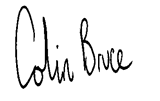 Colin Bruce